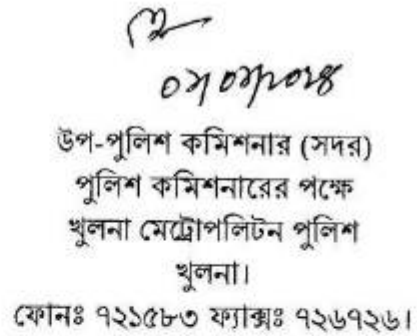 উপ-পুলিশ কমিশনার (সদর)
পুলিশ কমিশনারের পক্ষে
খুলনা মেট্রোপলিটন পুলিশ
খুলনা।
ফোনঃ ৭২১৫৮৩ ফ্যাক্সঃ ৭২৬৭২৬।